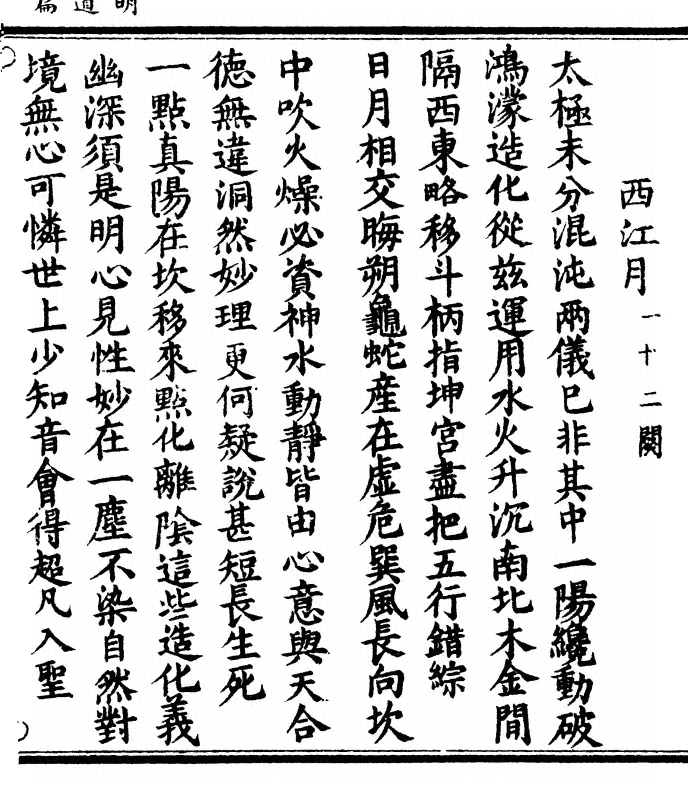 明道篇
西江月一十二闋
太極未分混沌兩儀已非其中一陽纔動破
鴻濛造化從兹運用水火升沉南北木金間
隔西東略移斗柄指坤宮盡把五行錯綜
日月相交晦朔龜蛇産在虛危巽風長向坎
中吹火燥必資神水動靜皆由心意與天合
徳無違洞然妙理更何疑說甚短長生死
一點真陽在坎移來㸃化離陰這些造化義
幽深須是明心見性妙在一塵不染自然對
境無心可憐世上少知音會得超凡入聖